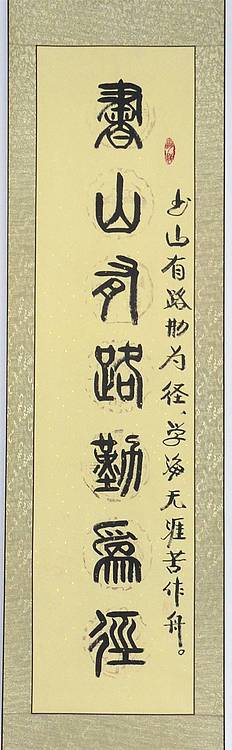 書山有路勤爲徑
书山有路勤为径、学海无涯苦作舟。